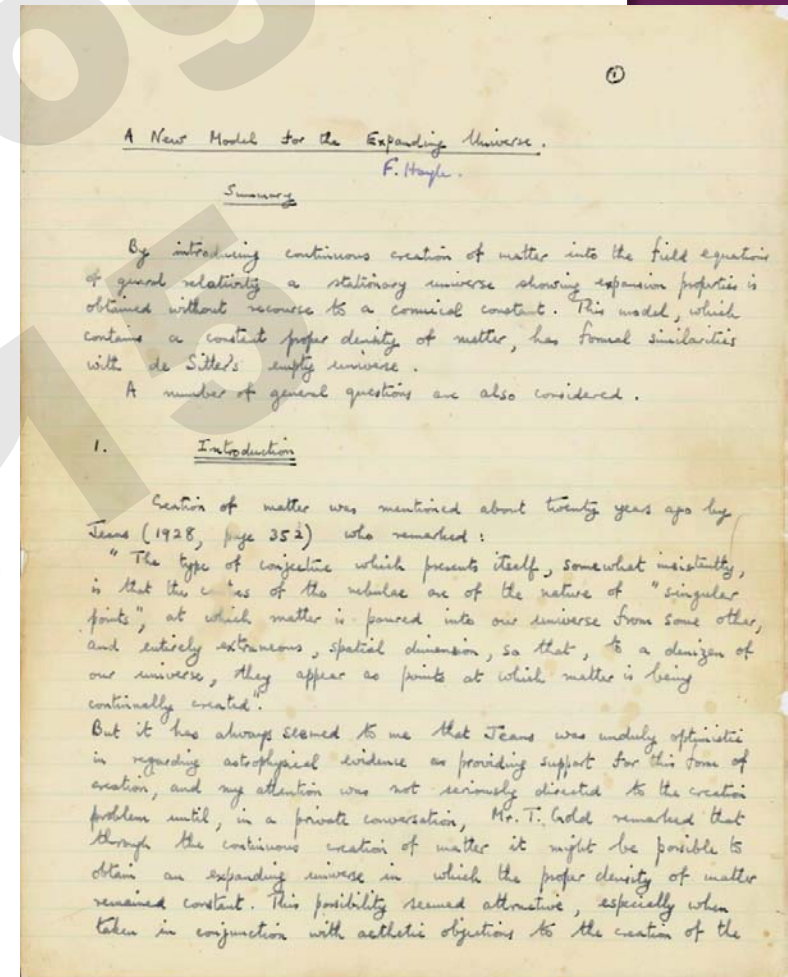 ①
A New Model for the Expanding Universe.
F. Hoyle.
Summary
By introducing continuous creation of matter into the field equations
of general relativity a stationary universe showing expansion properties is
obtained without recourse to a cosmical constant. This model, which
contains a constant proper density of matter, has formal similarities
with de Sitter's empty universe.
A number of general questions are also considered.
1. Introduction
Creation of matter was mentioned about twenty years ago by
Jeans (1928, page 352) who remarked:
"The type of conjecture which presents itself, somewhat insistently,
is that the centres of the nebulae are of the nature of "singular
points", at which matter is poured into our universe from some other,
and entirely extraneous, spatial dimension, so that, to a denizen of
our universe, they appear as points at which matter is being
continually created".
But it has always seemed to me that Jeans was unduly optimistic
in regarding astrophysical evidence as providing support for this form of
creation, and my attention was not seriously directed to the creation
problem until, in a private conversation, Mr. T. Gold remarked that
through the continuous creation of matter it might be possible to
obtain an expanding universe in which the proper density of matter
remained constant. This possibility seemed attractive, especially when
taken in conjunction with aesthetic objections to the creation of the